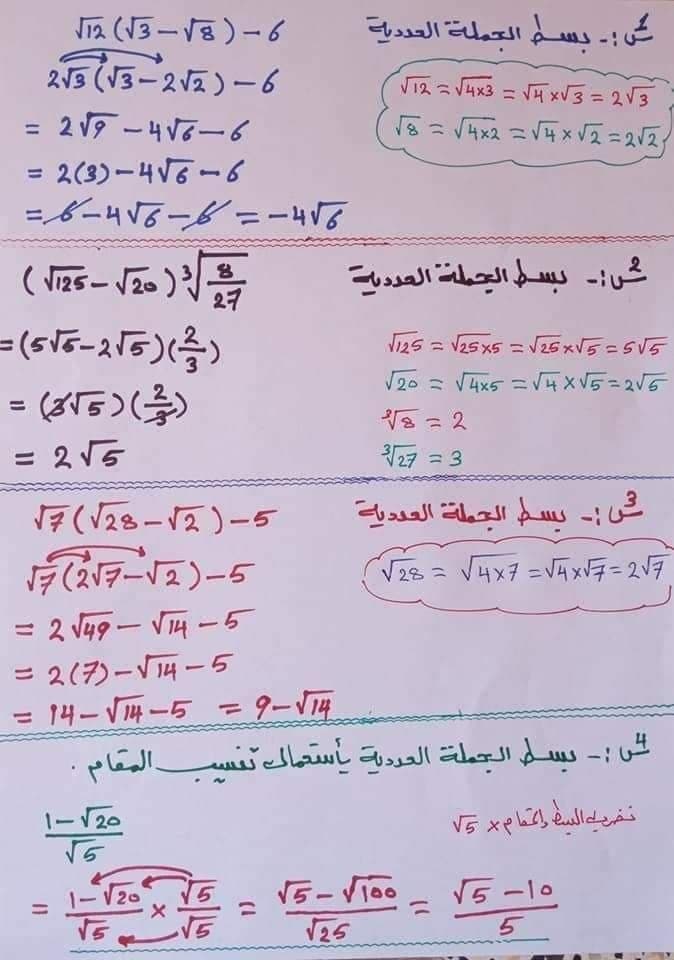 س1:- بسط الجملة العددية
√12 (√3 - √8) - 6
2√3 (√3 - 2√2) - 6
= 2√9 - 4√6 - 6
= 2(3) - 4√6 - 6
= 6 - 4√6 - 6 = -4√6
√12 = √4×3 = √4 × √3 = 2√3
√8 = √4×2 = √4 × √2 = 2√2
س2:- بسط الجملة العددية
(√125 - √20) ∛(8/27)
= (5√5 - 2√5)(2/3)
= (3√5)(2/3)
= 2√5
√125 = √25×5 = √25 × √5 = 5√5
√20 = √4×5 = √4 × √5 = 2√5
∛8 = 2
∛27 = 3
س3:- بسط الجملة العددية
√7 (√28 - √2) - 5
√7 (2√7 - √2) - 5
= 2√49 - √14 - 5
= 2(7) - √14 - 5
= 14 - √14 - 5 = 9 - √14
√28 = √4×7 = √4 × √7 = 2√7
س4:- بسط الجملة العددية بأستعمال تنسيب المقام.
(1 - √20)/√5
نضرب البسط والمقام × √5
= (1 - √20)/√5 × √5/√5 = (√5 - √100)/√25 = (√5 - 10)/5